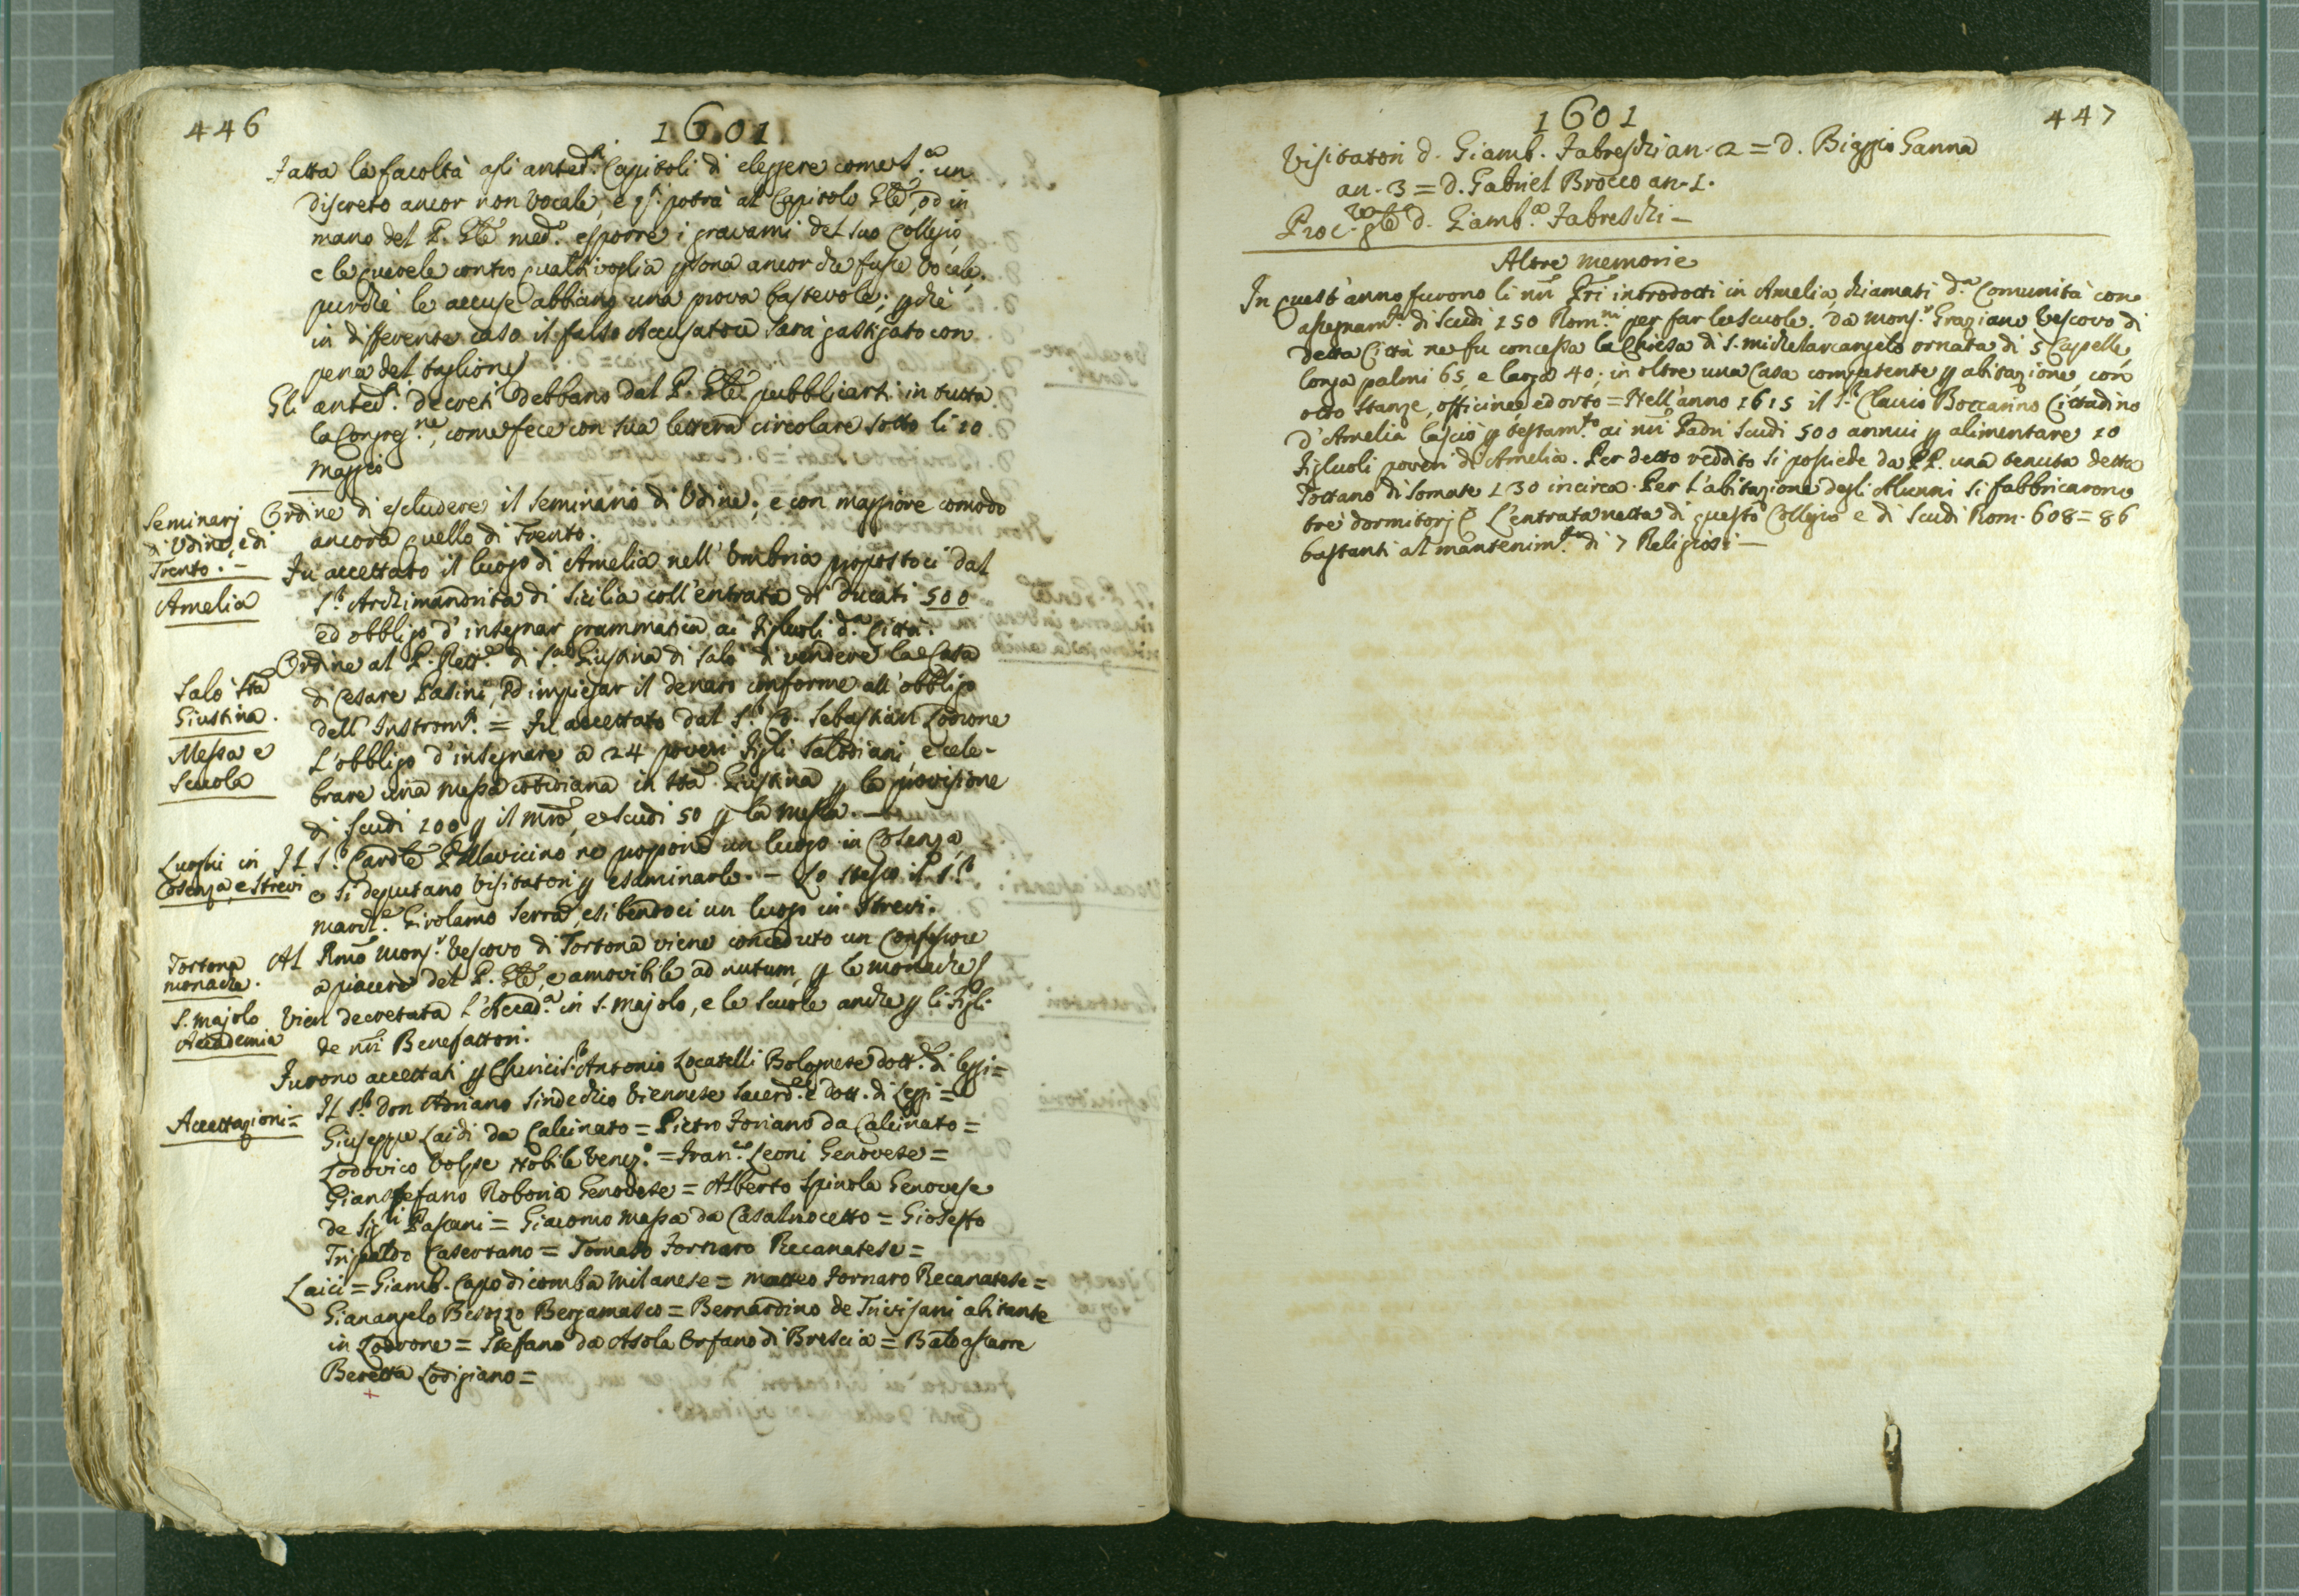 446
1601
Fatta la facoltà agli anted.ti Capitoli di eleggere come s.a un
discreto ancor non vocale, e q.ti potrà al Capitolo Gle, od in
mano del P. Gle med.o esporre i gravami del suo Collegio,
e le querele contro qualsivoglia psona ancor che fusse vocale,
purchè le accuse abbiano una prova bastevole; pchè
in differente caso il falso Accusatore sarà gastigato con
pena del taglione
Gli anted.ti decreti debbano dal P. Gle pubblicarsi in tutta
la Congreg.ne, come fece con sua lettera circolare sotto li 10
Maggio
Seminarj
di Udine, e di
Trento. -
Ordine di escludere il seminario di Udine; e con maggiore comodo
ancora quello di Trento.
Amelia
Fu accettato il luogo di Amelia nell'Umbria propostoci dal
S.r Archimandrita di Sicilia coll'entrata di ducati 500
ed obbligo d'insegnar grammatica ai figluoli d.a Città.
Salò Sta
Giustina.
Ordine al P. Rett.e di S.ta Giustina di Salò di vendere la Casa
di Cesare Pasini, ed impiegar il denaro conforme all'obbligo
dell'Instrom.to = Fu accettato dal S.r C. Sebastian Lodrone
Messa e
Scuola
L'obbligo d'insegnare a 24 poveri figli Salodiani, e cele-
brare una messa cottidiana in Sta Giustina p la provisione
di scudi 100 p il mro, e scudi 50 p la messa. -
Luoghi in
Cosenza, e Strevi
Il S.r Cardle Pallavicino ne propone un luogo in Cosenza,
e si deputano Visitatori p esaminarlo. - Lo stesso il S.r
March.e Girolamo Serra, esibendoci un luogo in Strevi.
Tortona
monache.
Al Rmo Mons.r Vescovo di Tortona viene conceduto un Confessore
a piacere del P. Gle, e amovibile ad nutum, p le monache
S. Majolo
Accademia
Vien decretata l'Accad.a in S. Majolo, e le scuole anche p li figli
de nri Benefattori.
Accettazioni =
Furono accettati p Chierici S.r Antonio Locatelli Bolognese dott.e di leggi =
Il S.r Don Adriano Sindechio Viennese Sacerd.e e Dott. di Leggi =
Giuseppe Laidi da Calcinato = Pietro Foriano da Calcinato =
Lodovico Volpe Nobile Venez.o = Fran.co Leoni Genovese =
Gianstefano Roboria Genovese = Alberto Spinola Genovese
de Sig.ri Pascani = Giacomo Massa da Casalnocetto = Gioseffo
Tripaldo Casertano = Tomaso Fornaro Recanatese =
Laici = Giamb. Capo di comba Milanese = Matteo Fornaro Recanatese =
Gianangelo Besozzo Bergamasco = Bernardino de Trivisani abitante
in Lodrone = Stefano da Asola Orfano di Brescia = Baldassarre
Beretta Lodigiano =
1601
447
Visitatori d. Giamb. Fabreschi an. 2 = D. Biaggio Ganna
an. 3 = D. Gabriel Brocco an. 1.
Proc.re gle d. Giamb.a Fabreschi -
Altre memorie
In quest'anno furono li nri Pri introdotti in Amelia, chiamati d.a Comunità con
assegnam.to di Scudi 150 Rom.ni per far le scuole. Da Mons.r Graziano Vescovo di
detta Città ne fu concessa la Chiesa di S. Michelarcangelo ornata di 5 Capelle,
longa palmi 65, e larga 40; in oltre una Casa competente p abitazione, con
otto stanze, officine, ed orto = Nell'anno 1615 il S.r Clancio Boccarino Cittadino
d'Amelia lasciò p testam.to ai nri Padri Scudi 500 annui p alimentare 10
figluoli poveri di Amelia. Per detto reddito si possiede da PP. una tenuta detta
Tottano di somate 130 incirca. Per l'abitazione degli Alunni si fabbricarono
trè dormitorj. L'entrata netta di questo Collegio e di Scudi Rom. 608 = 86
bastanti al mantenim.to di 7 Religiosi -